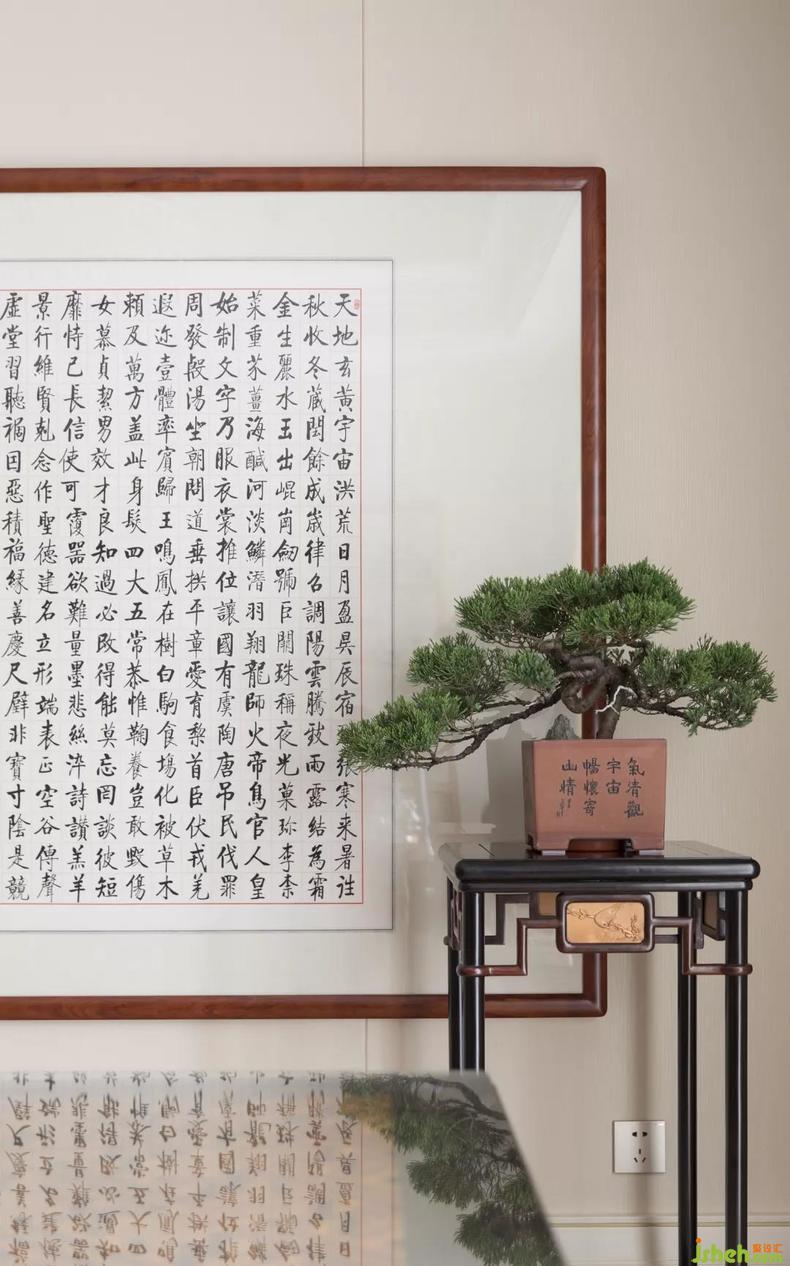 天地玄黃宇宙洪荒日月盈昃辰宿張寒来暑往
秋收冬藏閏餘成歲律呂調陽雲騰致雨露結為霜
金生麗水玉出崐崗劒號巨闕珠稱夜光菓珍李柰
菜重芥薑海鹹河淡鱗潛羽翔龍師火帝鳥官人皇
始制文字乃服衣裳推位讓國有虞陶唐吊民伐罪
周發殷湯坐朝問道垂拱平章愛育黎首臣伏戎羌
遐迩壹體率賓歸王鳴鳳在樹白駒食場化被草木
賴及萬方蓋此身髮四大五常恭惟鞠養豈敢毀傷
女慕貞絜男效才良知過必改得能莫忘罔談彼短
靡恃己長信使可覆器欲難量墨悲絲染詩讚羔羊
景行維賢剋念作聖德建名立形端表正空谷傳聲
虛堂習聽禍因惡積福緣善慶尺璧非寶寸陰是競
氣清觀
宇宙
暢懷寄
山情
jsheh.com
聚设汇